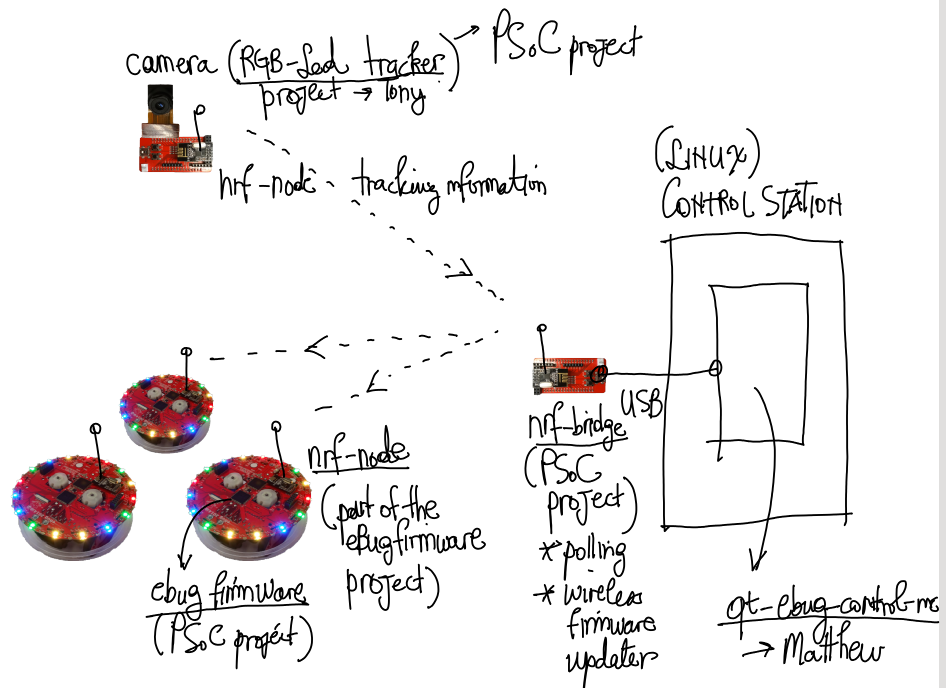 camera (RGB-Led tracker) → PSoC project
project → Tony
nrf-node
tracking information
(LINUX)
CONTROL STATION
USB
nrf-bridge
(PSoC
project)
* polling
* wireless
firmware
updater
nrf-node
(part of the
ebug firmware
project)
ebug firmware
(PSoC project)
qt-ebug-control-mo
→ Matthew